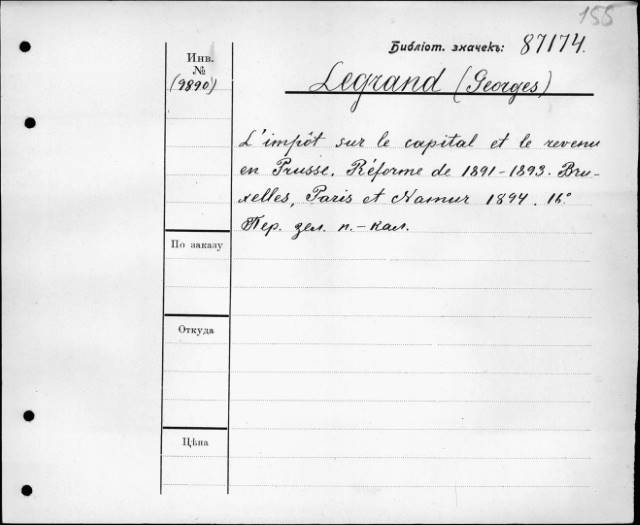 155
Библіот. значекъ: 87174.
Инв.
№
(9890)
Legrand (Georges)
L'impôt sur le capital et le revenu
en Prusse. Réforme de 1891-1893. Bru-
xelles, Paris et Namur 1894. 16°
Пер. зел. п.-кал.
По заказу
Откуда
Цѣна